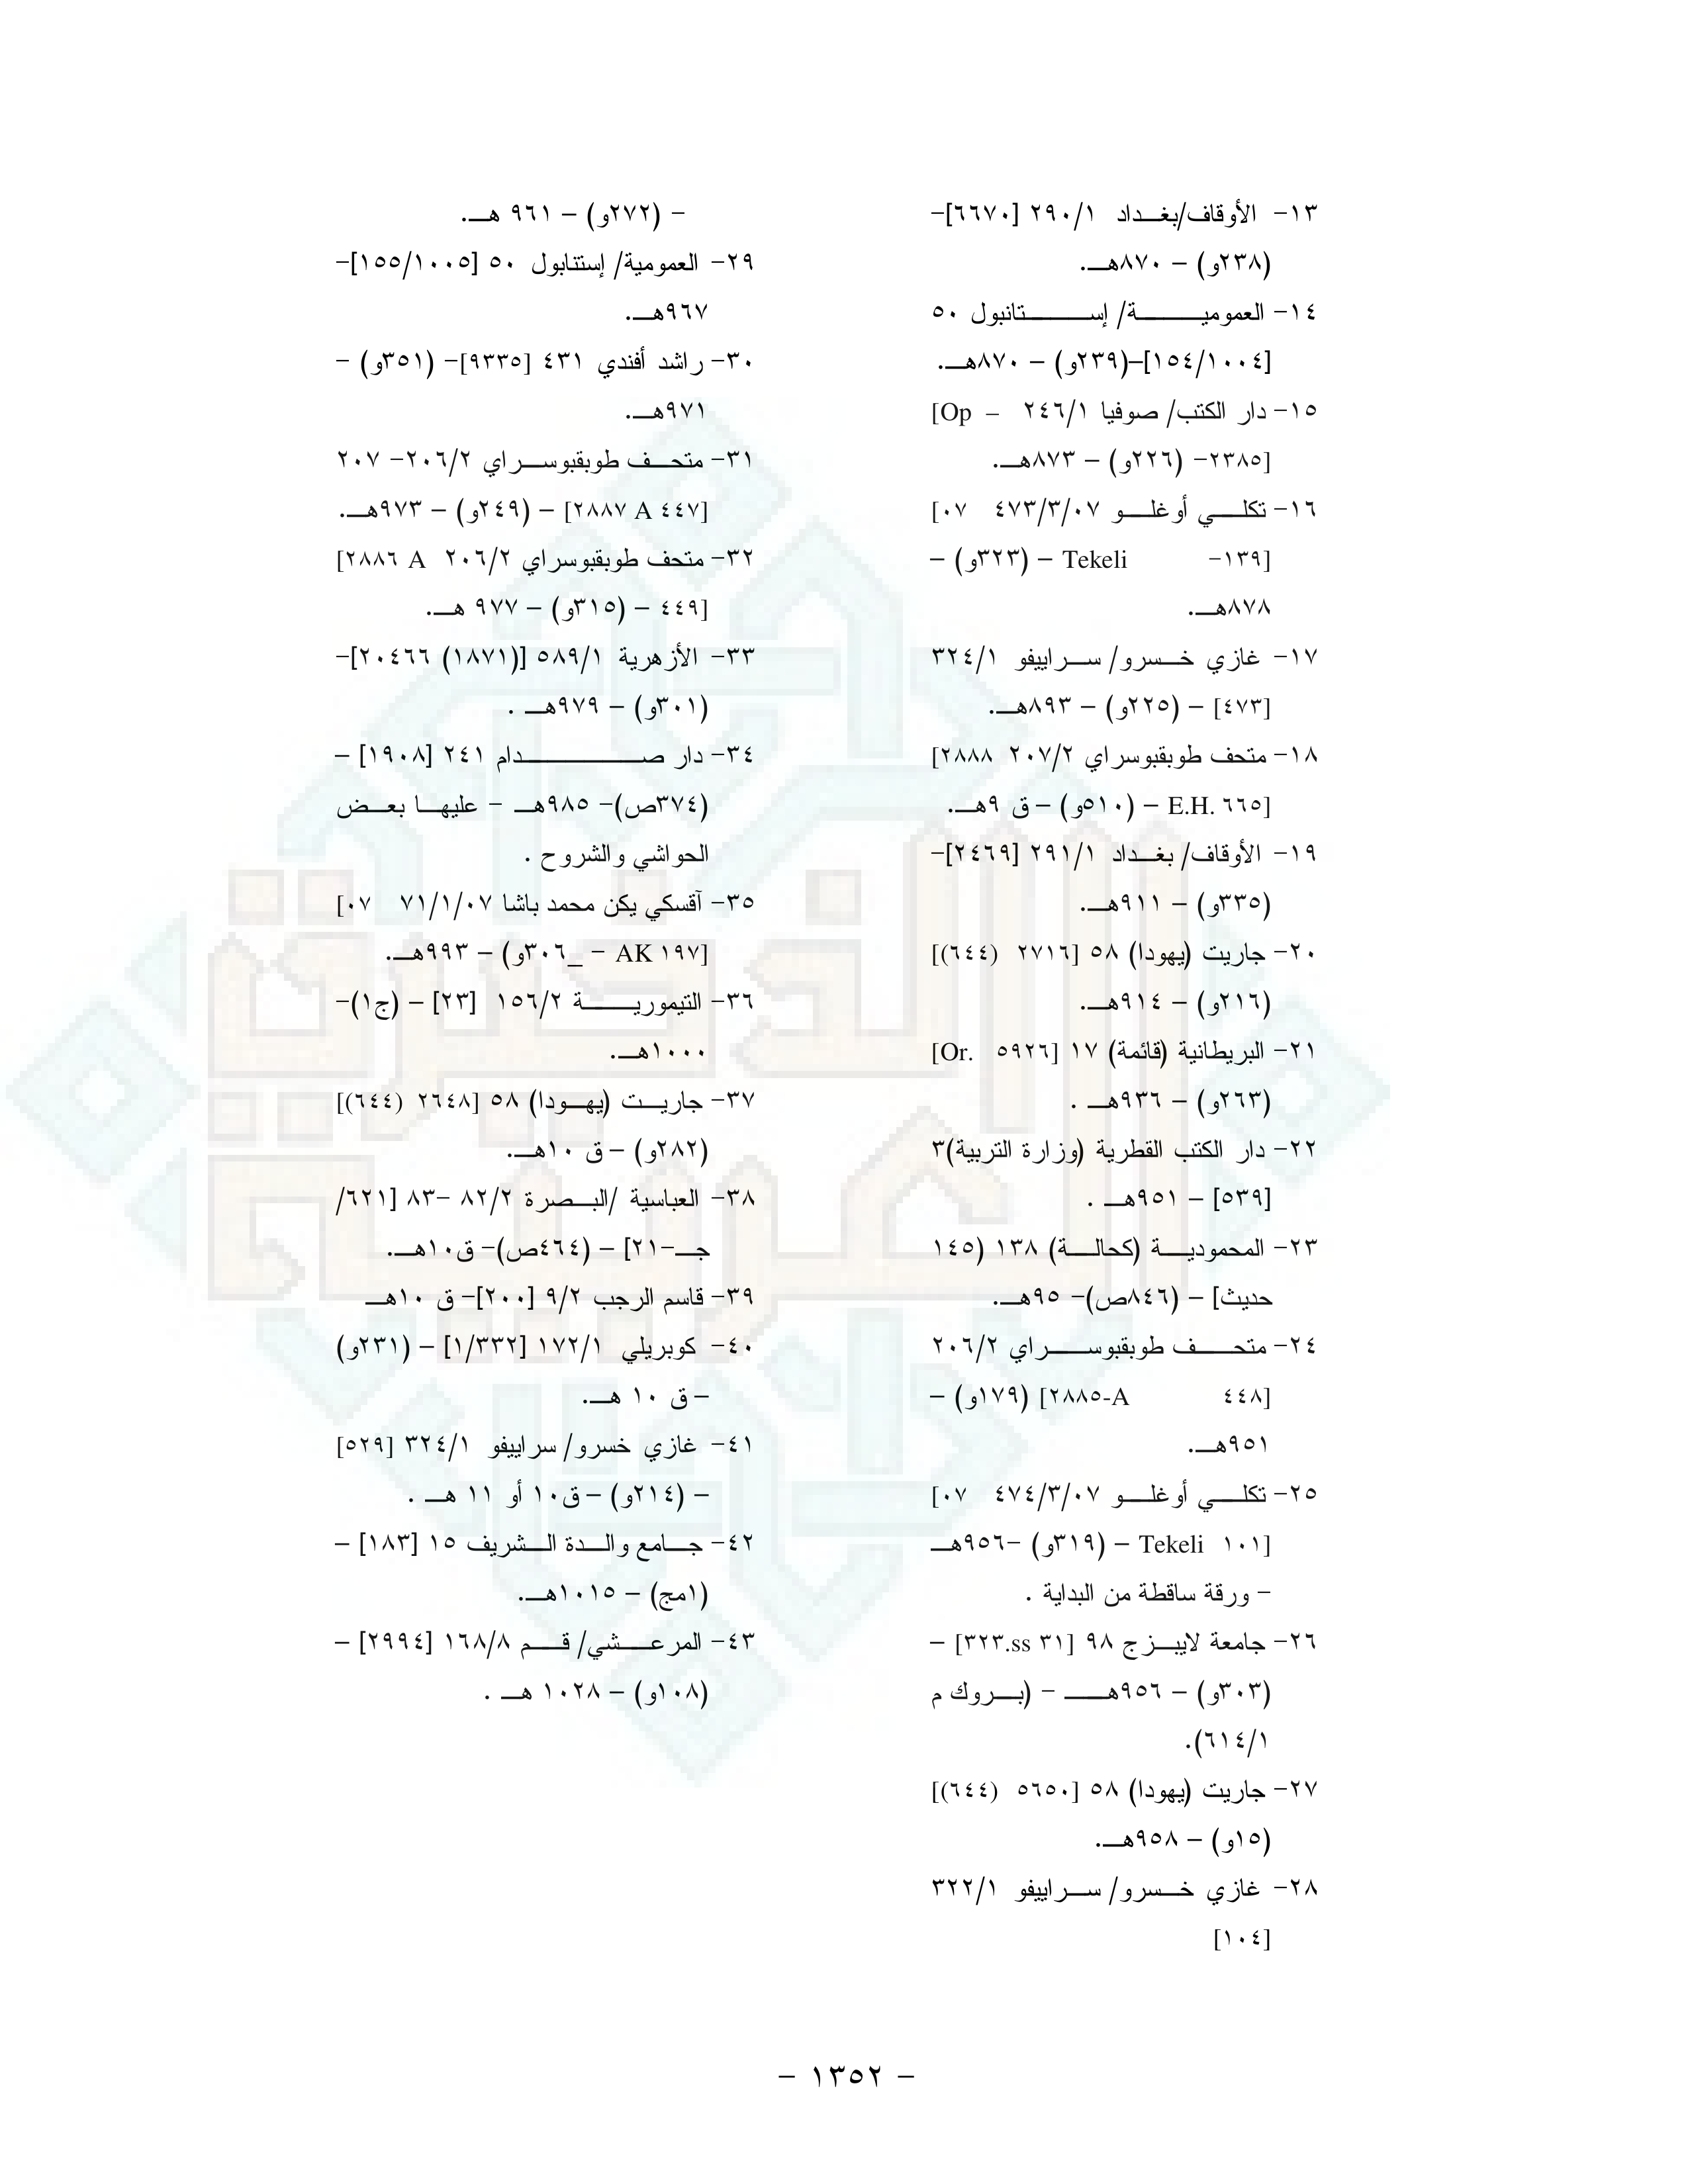 ١٣- الأوقاف/بغداد ٢٩٠/١ [٦٦٧٠]-
(٢٣٨و) – ٨٧٠هـ.
١٤- العمومية/ إستانبول ٥٠
[١٥٤/١٠٠٤]–(٢٣٩و) – ٨٧٠هـ.
١٥- دار الكتب/ صوفيا ٢٤٦/١ [Op –
٢٣٨٥]- (٢٢٦و) – ٨٧٣هـ.
١٦- تكلي أوغلو ٤٧٣/٣/٠٧ [٠٧
Tekeli -١٣٩] – (٣٢٣و) –
٨٧٨هـ.
١٧- غازي خسرو/ سراييفو ٣٢٤/١
[٤٧٣] – (٢٢٥و) – ٨٩٣هـ.
١٨- متحف طوبقبوسراي ٢٠٧/٢ [٢٨٨٨
E.H. ٦٦٥] – (٥١٠و) – ق ٩هـ.
١٩- الأوقاف/ بغداد ٢٩١/١ [٢٤٦٩]-
(٣٣٥و) – ٩١١هـ.
٢٠- جاريت (يهودا) ٥٨ [٢٧١٦ (٦٤٤)]
(٢١٦و) – ٩١٤هـ.
٢١- البريطانية (قائمة) ١٧ [Or. ٥٩٢٦]
(٢٦٣و) – ٩٣٦هـ .
٢٢- دار الكتب القطرية (وزارة التربية)٣
[٥٣٩] – ٩٥١هـ .
٢٣- المحمودية (كحالة) ١٣٨ (١٤٥
حديث] – (٨٤٦ص)- ٩٥هـ.
٢٤- متحف طوبقبوسراي ٢٠٦/٢
[٢٨٨٥-A ٤٤٨] (١٧٩و) –
٩٥١هـ.
٢٥- تكلي أوغلو ٤٧٤/٣/٠٧ [٠٧
Tekeli ١٠١] – (٣١٩و) -٩٥٦هـ
- ورقة ساقطة من البداية .
٢٦- جامعة لايبزج ٩٨ [٣٢٣.ss ٣١] –
(٣٠٣و) – ٩٥٦هـ - (بروك م
٦١٤/١).
٢٧- جاريت (يهودا) ٥٨ [٥٦٥٠ (٦٤٤)]
(١٥و) – ٩٥٨هـ.
٢٨- غازي خسرو/ سراييفو ٣٢٢/١
[١٠٤]
- (٢٧٢و) – ٩٦١ هـ.
٢٩- العمومية/ إستنابول ٥٠ [١٥٥/١٠٠٥]-
٩٦٧هـ.
٣٠- راشد أفندي ٤٣١ [٩٣٣٥]- (٣٥١و) -
٩٧١هـ.
٣١- متحف طوبقبوسراي ٢٠٦/٢- ٢٠٧
[٢٨٨٧ A ٤٤٧] – (٢٤٩و) – ٩٧٣هـ.
٣٢- متحف طوبقبوسراي ٢٠٦/٢ [٢٨٨٦ A
٤٤٩] – (٣١٥و) – ٩٧٧ هـ.
٣٣- الأزهرية ٥٨٩/١ [(١٨٧١) ٢٠٤٦٦]-
(٣٠١و) – ٩٧٩هـ .
٣٤- دار صدام ٢٤١ [١٩٠٨] –
(٣٧٤ص)- ٩٨٥هـ - عليها بعض
الحواشي والشروح .
٣٥- آقسكي يكن محمد باشا ٧١/١/٠٧ [٠٧
AK ١٩٧] – _٣٠٦و) – ٩٩٣هـ.
٣٦- التيمورية ١٥٦/٢ [٢٣] – (ج١)-
١٠٠٠هـ.
٣٧- جاريت (يهودا) ٥٨ [٢٦٤٨ (٦٤٤)]
(٢٨٢و) – ق ١٠هـ.
٣٨- العباسية /البصرة ٨٢/٢ -٨٣ [٦٢١/
جـ-٢١] – (٤٦٤ص)- ق١٠هـ.
٣٩- قاسم الرجب ٩/٢ [٢٠٠]- ق ١٠هـ
٤٠- كوبريلي ١٧٢/١ [١/٣٣٢] – (٢٣١و)
– ق ١٠ هـ.
٤١- غازي خسرو/ سراييفو ٣٢٤/١ [٥٢٩]
– (٢١٤و) – ق١٠ أو ١١ هـ .
٤٢- جامع والدة الشريف ١٥ [١٨٣] –
(١مج) – ١٠١٥هـ.
٤٣- المرعشي/ قم ١٦٨/٨ [٢٩٩٤] –
(١٠٨و) – ١٠٢٨ هـ .
- ١٣٥٢ -